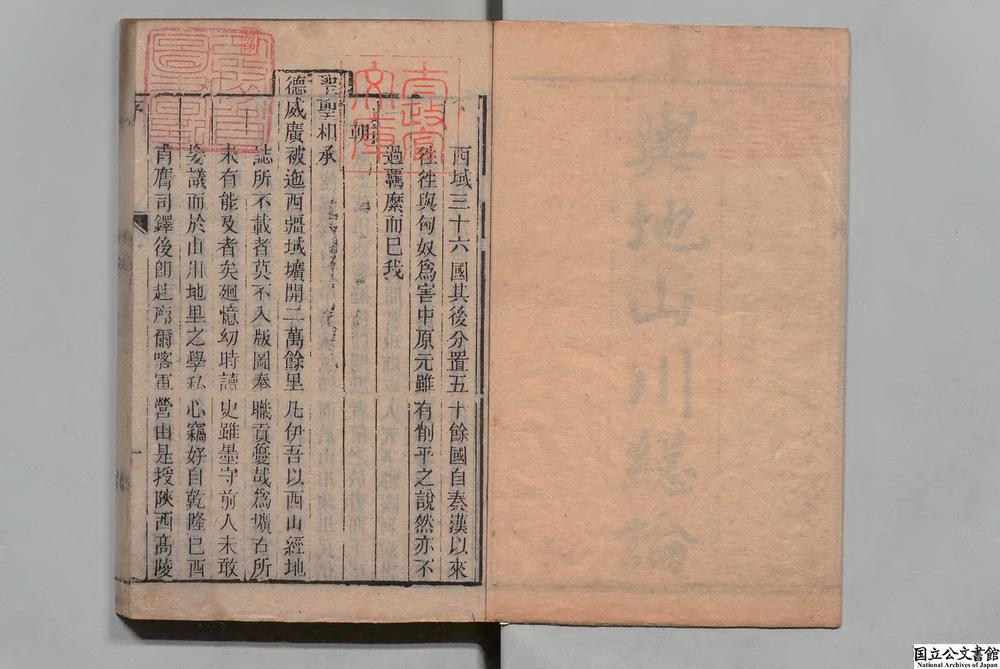 輿地山川總論
西域三十六國其後分置五十餘國自秦漢以來
徃徃與匈奴爲害中原元雖有削平之說然亦不
過羈縻而已我
朝
聖聖相承
德威廣被迤西疆域壙開二萬餘里凡伊吾以西山經地
誌所不載者莫不入版圖奉職貢戞哉爲壙古所
未有能及者矣廻憶幼時讀史雖墨守前人未敢
妄議而於山川地里之學私心竊好自乾隆己酉
甫膺司鐸後卽赴喀爾喀軍營由是授陝西高陵
序
一
国立公文書館
National Archives of Japan